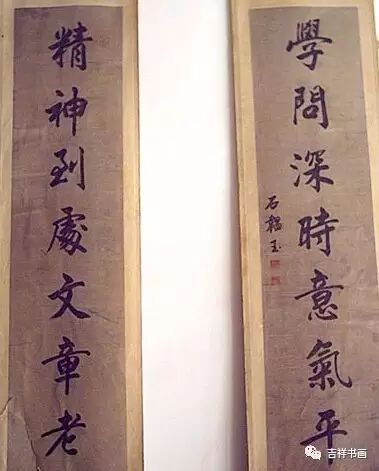 精神到處文章老
學問深時意氣平
石韞玉
吉祥书画